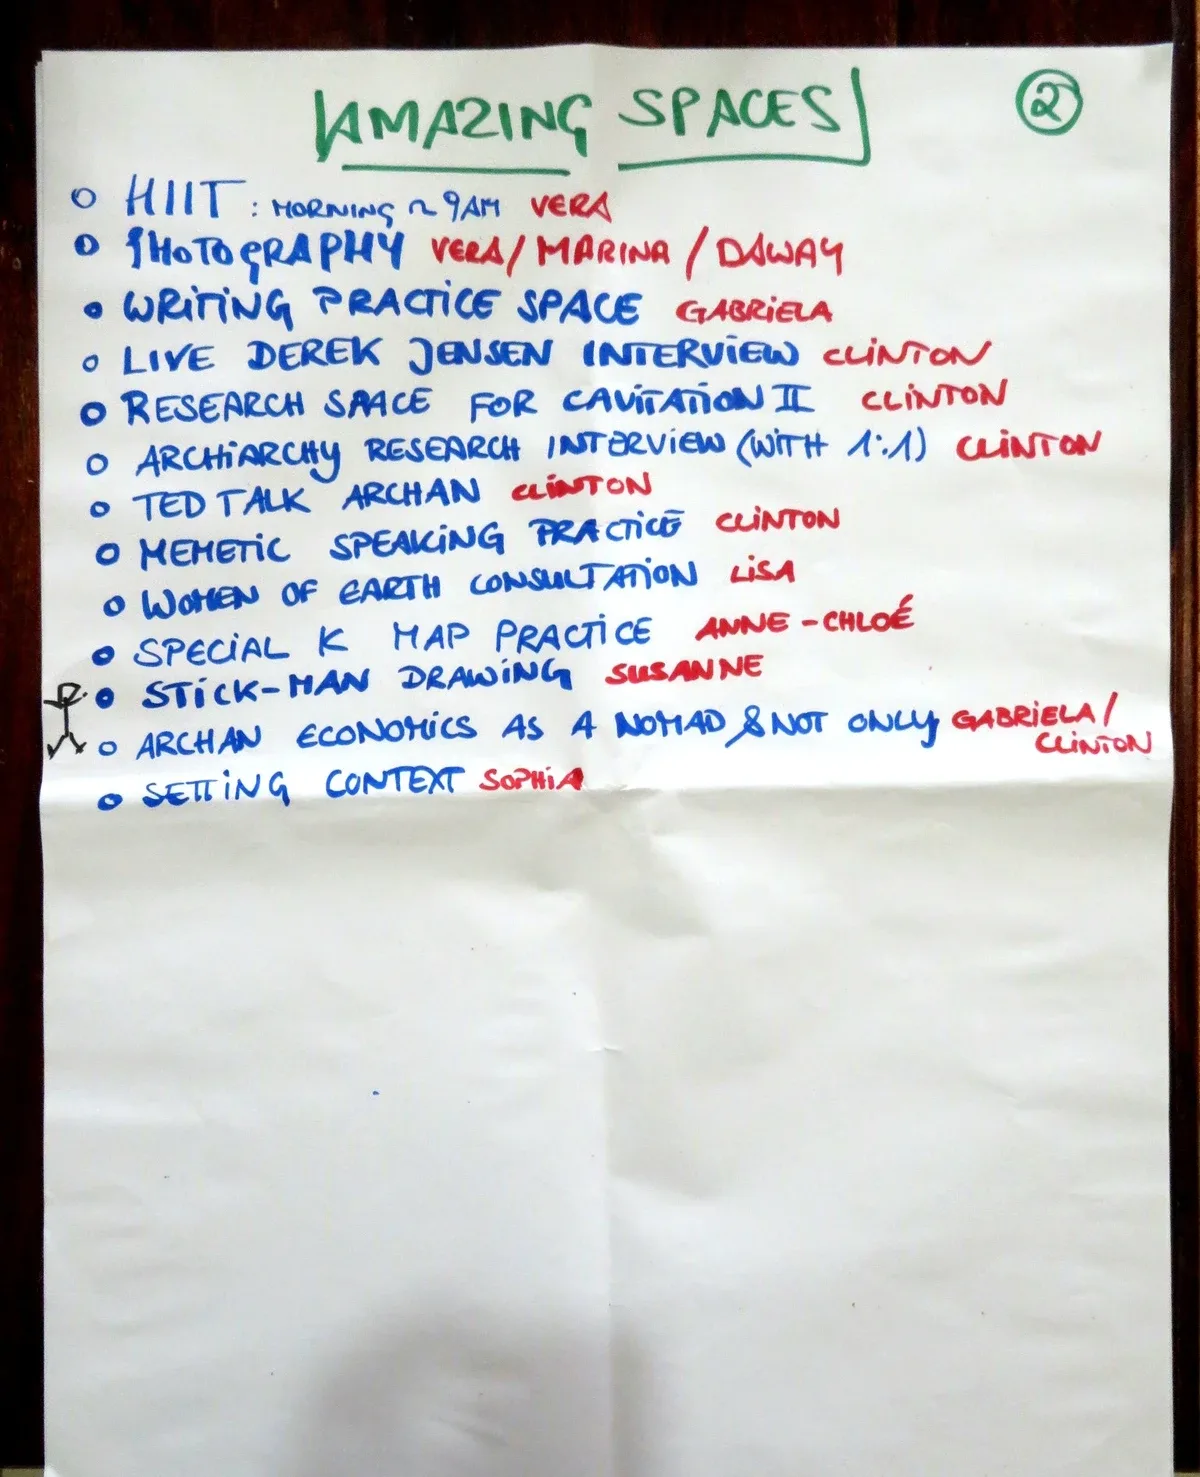 AMAZING SPACES
2
HIIT : MORNING ~ 9AM VERA
PHOTOGRAPHY VERA / MARINA / DAWAY
WRITING PRACTICE SPACE GABRIELA
LIVE DEREK JENSEN INTERVIEW CLINTON
RESEARCH SPACE FOR CAVITATION II CLINTON
ARCHIARCHY RESEARCH INTERVIEW (WITH 1:1) CLINTON
TED TALK ARCHAN CLINTON
MEMETIC SPEAKING PRACTICE CLINTON
WOMEN OF EARTH CONSULTATION LISA
SPECIAL K MAP PRACTICE ANNE-CHLOÉ
STICK-MAN DRAWING SUSANNE
ARCHAN ECONOMICS AS A NOMAD & NOT ONLY GABRIELA /
CLINTON
SETTING CONTEXT SOPHIA